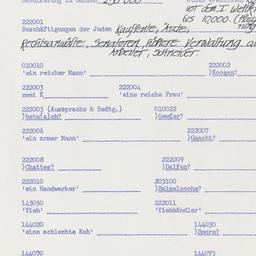 Bevölkerung im Ganzen 250 000
vor dem I. Weltk
bis 10,000.
222001
Beschäftigungen der Juden Kaufleute, Ärzte,
Rechtsanwälte, Senatoren, höhere Verwaltung
Arbeiter, Schneider
010010 222002
'ein reicher Mann' )Koozen?
222003 222004
zwei K 'eine reiche Frau'
222005 (Aussprache & Bedtg.) 010022
)betu(a)ch? )Gewier?
222006 222007
'ein armer Mann' )Gancht?
222008 222009
)Chattes? )Dalfen?
222010 203100
'ein Handwerker' )Balmeloche?
143050 222011
'Vieh' 'Viehhändler'
144020 144030
'eine schlechte Kuh' )Boore?
144070 144073